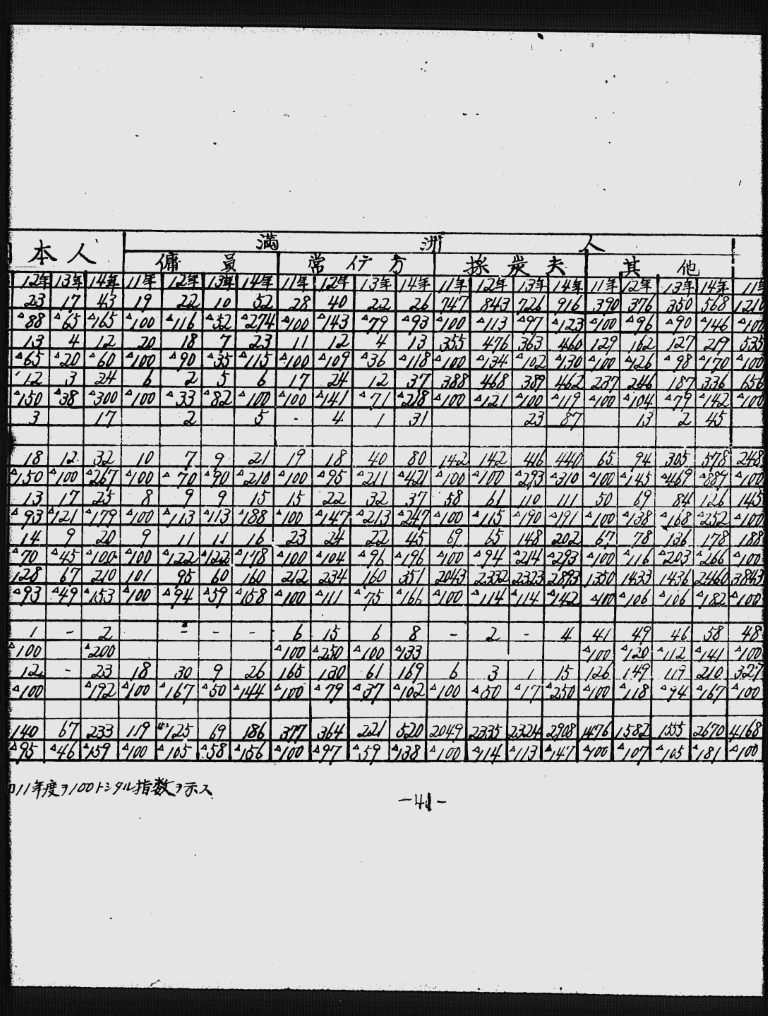 本人 滿洲人
傭員 常傭方 採炭夫 其他
12年 13年 14年 11年 12年 13年 14年 11年 12年 13年 14年 11年 12年 13年 14年 11年 12年 13年 14年 11年
23 17 43 19 22 10 52 28 40 22 26 747 843 726 916 390 376 350 568 1210
△88 △65 △165 △100 △116 △52 △274 △100 △143 △79 △93 △100 △113 △97 △123 △100 △96 △90 △146 △100
13 4 12 20 18 7 23 11 12 4 13 355 476 363 460 129 162 127 219 535
△65 △20 △60 △100 △90 △35 △115 △100 △109 △36 △118 △100 △134 △102 △130 △100 △126 △98 △170 △100
12 3 24 6 2 5 6 17 24 12 37 388 468 389 462 237 246 187 336 656
△150 △38 △300 △100 △33 △82 △100 △100 △141 △71 △218 △100 △121 △100 △119 △100 △104 △79 △142 △100
3 17 2 5 - 4 1 31 23 87 13 2 45
18 12 32 10 7 9 21 19 18 40 80 142 142 416 440 65 94 305 578 248
△150 △100 △267 △100 △70 △90 △210 △100 △95 △211 △421 △100 △100 △293 △310 △100 △145 △469 △889 △100
13 17 25 8 9 9 15 15 22 32 37 58 61 110 111 50 69 84 126 145
△93 △121 △179 △100 △113 △113 △188 △100 △147 △213 △247 △100 △115 △190 △191 △100 △138 △168 △252 △100
14 9 20 9 11 11 16 23 24 22 45 69 65 148 202 67 78 136 178 188
△70 △45 △100 △100 △122 △122 △178 △100 △104 △96 △196 △100 △94 △214 △293 △100 △116 △203 △266 △100
128 67 210 101 95 60 160 212 234 160 351 2043 2332 2323 2893 1350 1433 1436 2460 3843
△93 △49 △153 △100 △94 △59 △158 △100 △111 △75 △166 △100 △114 △114 △142 △100 △106 △106 △182 △100
1 - 2 - - - - 6 15 6 8 - 2 - 4 41 49 46 58 48
△100 △200 △100 △250 △100 △133 △100 △120 △112 △141 △100
12 - 23 18 30 9 26 165 130 61 169 6 3 1 15 126 149 119 210 327
△100 △192 △100 △167 △50 △144 △100 △79 △37 △102 △100 △50 △17 △250 △100 △118 △94 △167 △100
140 67 233 119 125 69 186 377 364 221 520 2049 2335 2324 2908 1476 1582 1555 2670 4168
△95 △46 △159 △100 △105 △58 △156 △100 △97 △59 △138 △100 △114 △113 △141 △100 △107 △105 △181 △100
11年度ヲ100トシタル指数ヲ示ス
-41-